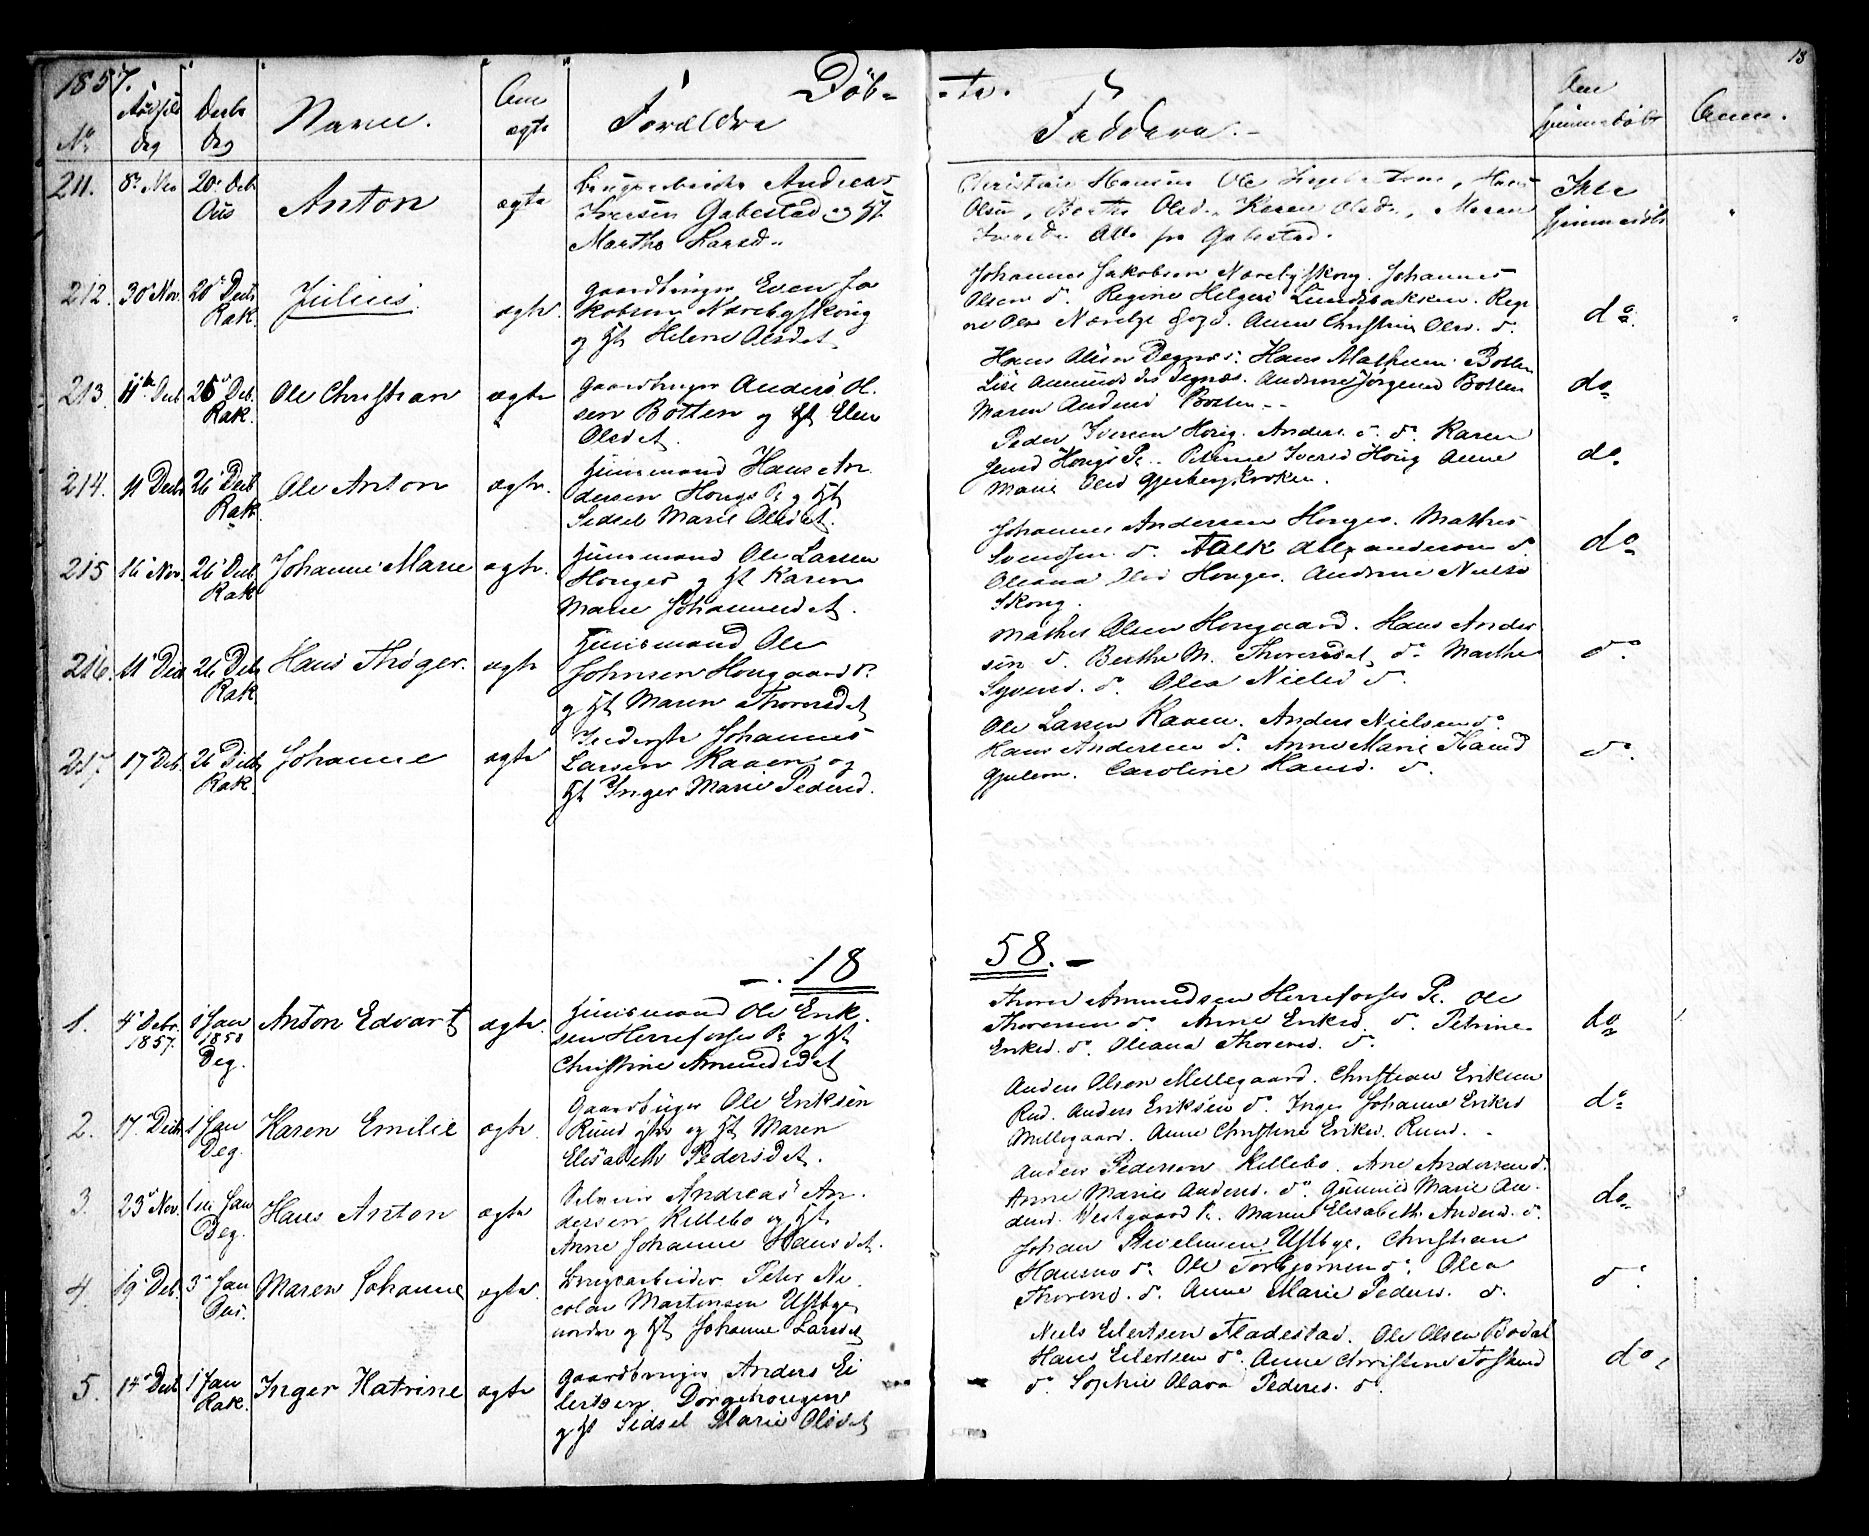 1857. Döb- -te. 18
No Fødsels dag Daabs dag Navn. Om ægte Forældre Faddere. Om hjemmedøbt Anm.
211. 8de Nov 20de Deb Aas Anton ægte
Andreas
Iversen Gabestad og H.
Marthe Larsd.
Christian Hansen Ole
Olsen, Berthe Olsd., Karen Olsd., Maren
Iversdr Alle fra Gabestad.
Ikke hjemmedøbt "
212. 30 Nov. 20de Decbr Rak. Julius ægte.
Gaardbruger Even Ja
kobsen Nærebyskoug
og Ht Helene Olsdat.
Johannes Jakobsen Nærebyskoug. Johannes
Olsen do. Regine Helgesd Lundsbakken. Regi
ne Olsd Nærebye
Anne Christine Olsd. do.
do. "
213. 11te Decb 26de Deb. Rak. Ole Christian ægte
Gaardbruger Anders H.
sen Botten og Ht Elen
Olsdat.
Hans Olsen Degnæs. Hans Mathisen Botten
Lise Amundsdr Degnæs. Andrine Jørgensd Botten
Maren Andersd Botten.--
do
214. 11 Decbr 26 Decb Rak. Ole Anton ægte.
Huusmand Hans An
dersen Hougs P. og Ht
Sidsel Marie Olsdat.
Peder Iversen Houg. Anders do. do. Karen
Jensd Hougs P.. Petrine Iversd Houg Anne
Marie Olsd Gjerbergkroken.
do.
215 16 Nov. 26 Decb Rak Johanne Marie ægte.
Huusmand Ole Larsen
Houger og Ht Karen
Marie Johannesdat.
Johannes Andersen Houger. Mathis
Svendsen do. Falk Alexandersen do.
Oleana Olsd Houger. Andrine Nielsd
Skoug.
do
216. 11 Dec 26 Debr Rak Hans Thøger. ægte
Huusmand Ole
Johnsen Hougaard P.
og Ht Maren Thorersdat
Mathis Olsen Hougaard. Hans Ander
sen do. Berthe M. Thorersdat, do. Marthe
Syversd. do. Olea Nielsd do.
do.
217. 17 Deb. 26 Decbr Rak. Johanne ægte
Inderste Johannes
Larsen Kaaen og
Ht Inger Marie Pedersd.
Ole Larsen Kaaen. Anders Nielsen do
Hans Andersen do. Anne Marie Hansd
Gjulem. Caroline Hansd. do.
do.
-. 18 58. -
1. 4 Debr. 1857. 1 Jan 1858 Deg. Anton Edvart ægte.
Huusmand Ole Erik-
sen Herrefosse P. og Ht
Christine Amundsdat
Thorer Amundsen Herrefosse P. Ole
Thoresen do. Anne Eriksd. do. Petrine
Eriksd. do. Oleana Thoresd. do.
do
2. 17. Decbr 1 Jan Deg. Karen Emilie ægte.
Gaardbruger Ole Eriksen
Ruud og Ht Maren
Elisabeth Pedersdat.
Anders Olsen Mellegaard. Christian Eriksen
Rud. Anders Eriksen do. Inger Johanne Eriksd
Mellegaard. Anne Christine Eriksd. Ruud.-
do.
3. 23 Nov. 1ste Jan Deg. Hans Anton ægte
Selveier Andreas An-
dersen Killebo og Ht
Anne Johanne Hansdat.
Anders Pedersen Killebo. Ane Andersen do.
Anne Marie Andersd. do. Gunnild Marie An-
dersd. Vestgaard P. Maren Elisabeth Andersd. do.
do.
4. 19 Deb. 3 Jan Aas. Maren Johanne ægte.
Brugsarbeider Peter Ni
colai Martinsen Ustbye
nordre og Ht Johanne Larsdat
Johan Ustbye. Christian
Hansen do. Ole Torbjørnsen do. Olea
Thorersd. do. Anne Marie Pedersd. do.
do.
5. 14 Decb 1 Jan Rak. Inger Katrine ægte
Gaardbruger Anders Ei
lertsen Dorgehougen
og Ht Sidsel Marie Olsdat
Niels Eilertsen Fladestad. Ole Olsen Bodal
Hans Eilertsen do. Anne Christine
do. Sophie Olava Pedersd. do.
do.